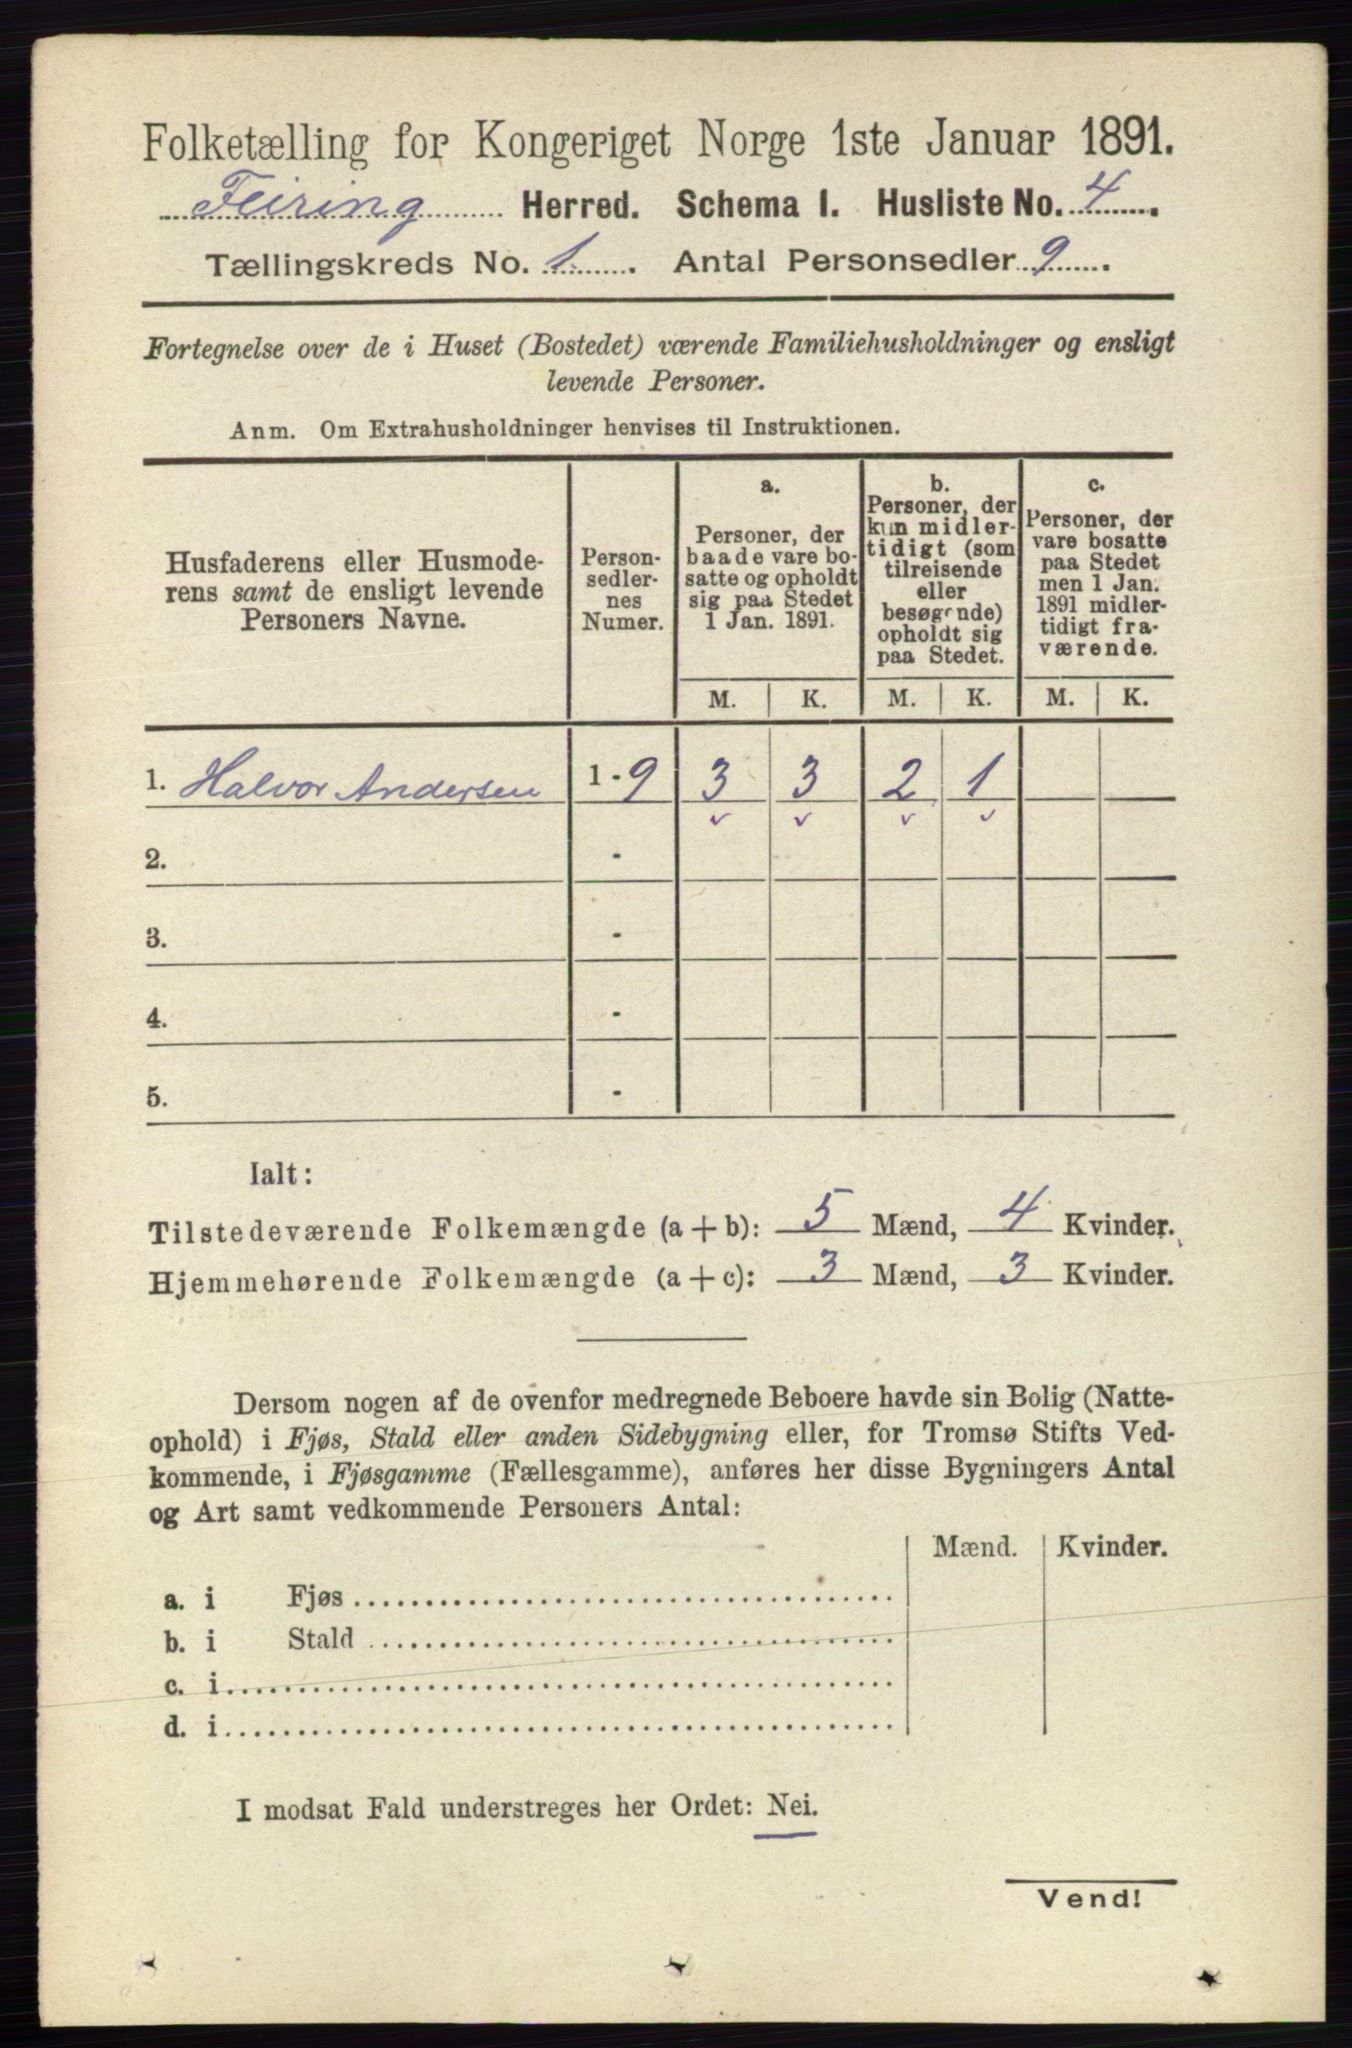 Folketælling for Kongeriget Norge 1ste Januar 1891.
Feiring Herred. Schema I. Husliste No. 4.
Tællingskreds No. 1. Antal Personsedler 9.
Fortegnelse over de i Huset (Bostedet) værende Familiehusholdninger og ensligt
levende Personer.
Anm. Om Extrahusholdninger henvises til Instruktionen.
Husfaderens eller Husmode-
rens samt de ensligt levende
Personers Navne.
Person-
sedler-
nes
Numer.
a.
Personer, der
baade vare bo-
satte og opholdt
sig paa Stedet
1 Jan. 1891.
b.
Personer, der
kun midler-
tidigt (som
tilreisende
eller
besøgende)
opholdt sig
paa Stedet.
c.
Personer, der
vare bosatte
paa Stedet
men 1 Jan.
1891 midler-
tidigt fra-
værende.
M. K. M. K. M. K.
1. Halvor Andersen 1 - 9 3 3 2 1
2. -
3. -
4. -
5. -
Ialt:
Tilstedeværende Folkemængde (a + b): 5 Mænd, 4 Kvinder.
Hjemmehørende Folkemængde (a + c): 3 Mænd, 3 Kvinder.
Dersom nogen af de ovenfor medregnede Beboere havde sin Bolig (Natte-
ophold) i Fjøs, Stald eller anden Sidebygning eller, for Tromsø Stifts Ved-
kommende, i Fjøsgamme (Fællesgamme), anføres her disse Bygningers Antal
og Art samt vedkommende Personers Antal:
Mænd. Kvinder.
a. i Fjøs
b. i Stald
c. i
d. i
I modsat Fald understreges her Ordet: Nei.
Vend!